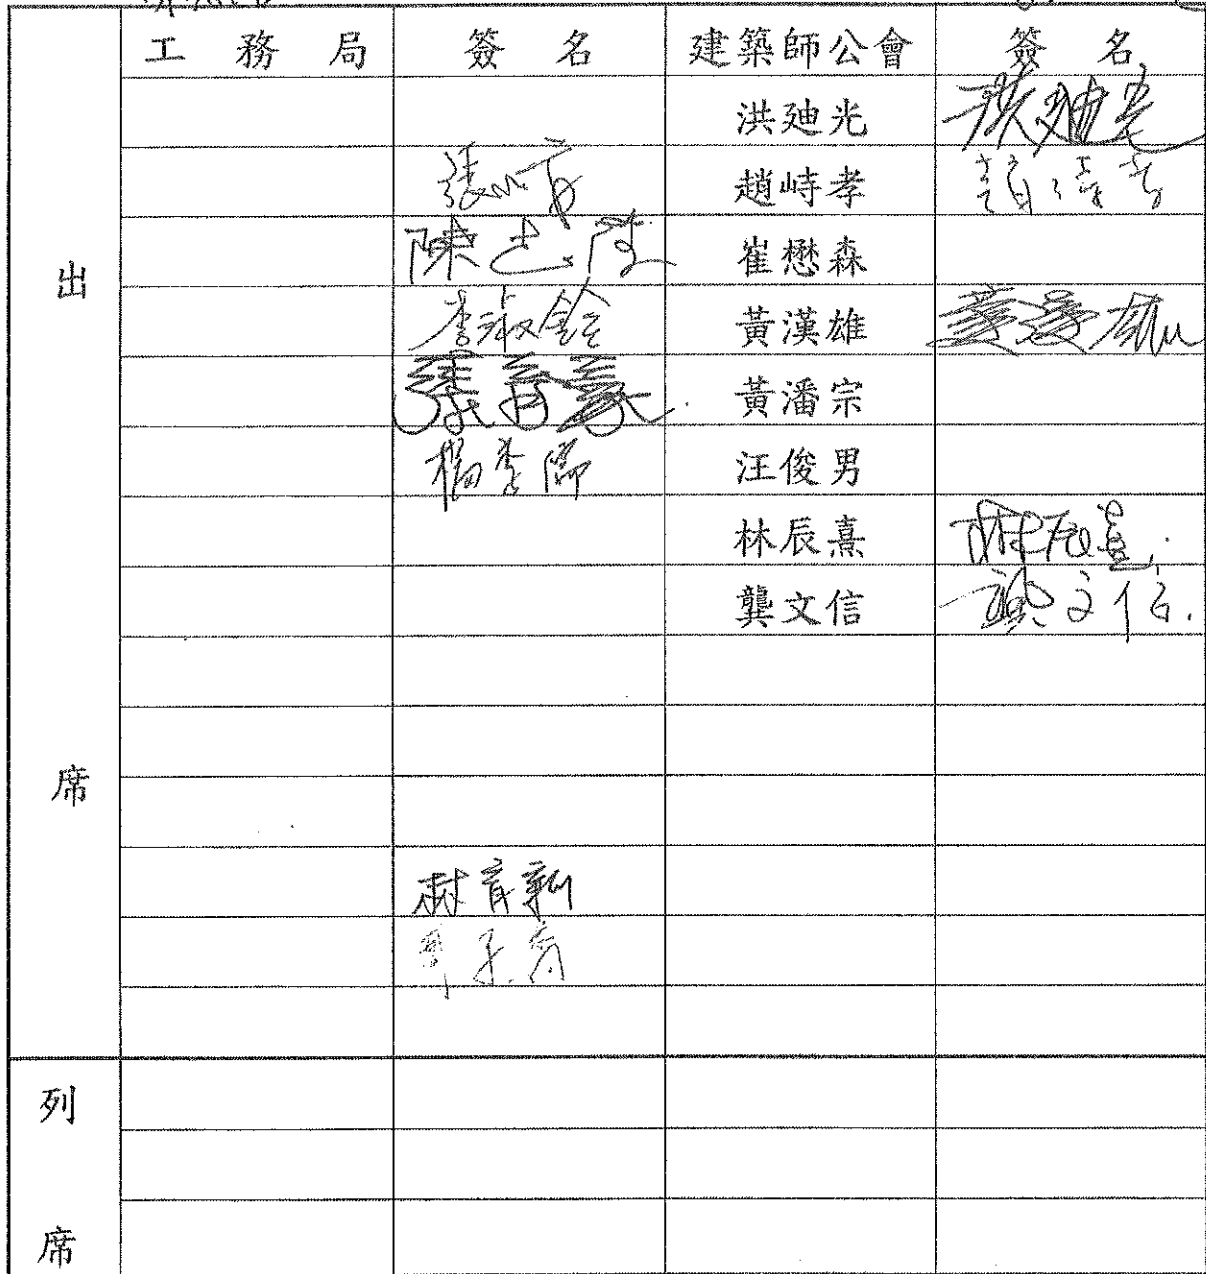 工務局 簽名 建築師公會 簽名
洪廸光 洪廸光
趙峙孝
出 陳 崔懋森
李淑銓 黃漢雄 黃漢雄
張育豪 黃潘宗
楊季儒 汪俊男
林辰熹 林辰熹
龔文信 龔文信
席
林育新
列
席